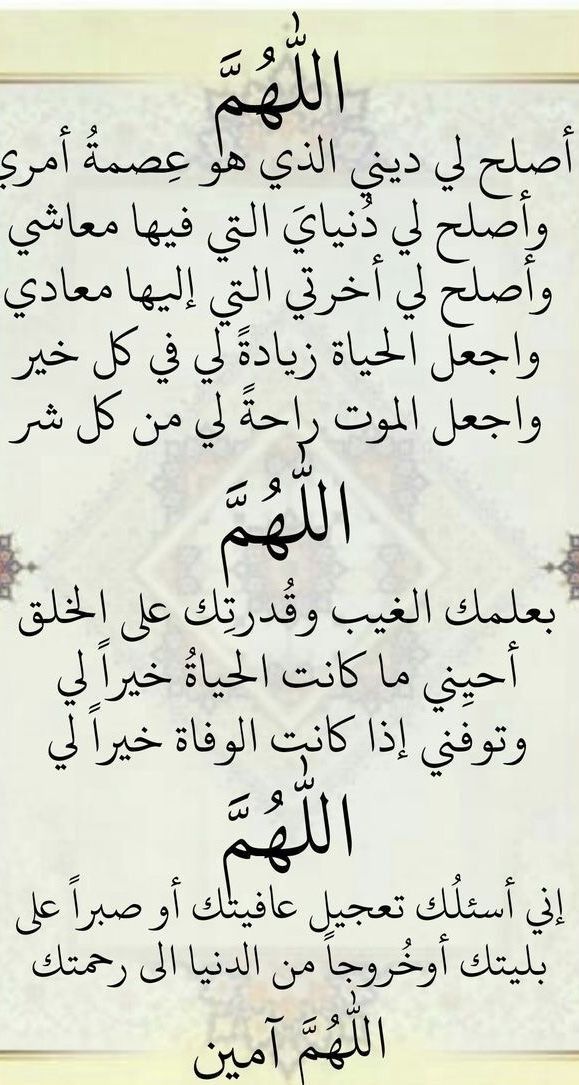 اللّٰهُمَّ
أصلح لي ديني الذي هو عِصمةُ أمري
وأصلح لي دُنيايَ التي فيها معاشي
وأصلح لي أخرتي التي إليها معادي
واجعل الحياة زيادةً لي في كل خير
واجعل الموت راحةً لي من كل شر
اللّٰهُمَّ
بعلمك الغيب وقُدرتِك على الخلق
أحيِني ما كانت الحياةُ خيراً لي
وتوفني إذا كانت الوفاة خيراً لي
اللّٰهُمَّ
إني أسئلُك تعجيل عافيتك أو صبراً على
بليتك أوخُروجاً من الدنيا الى رحمتك
اللّٰهُمَّ آمين